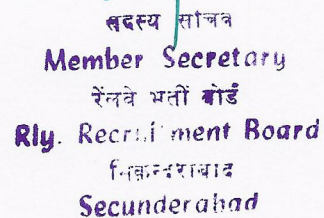 सदस्य सचिव
Member Secretary
रेलवे भर्ती बोर्ड
Rly. Recruitment Board
सिकन्दराबाद
Secunderabad